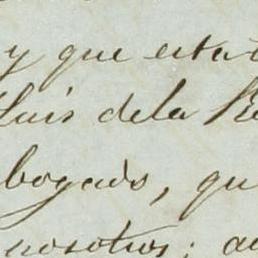 y que esta
Luis de la
bogado, qu
nosotros; a